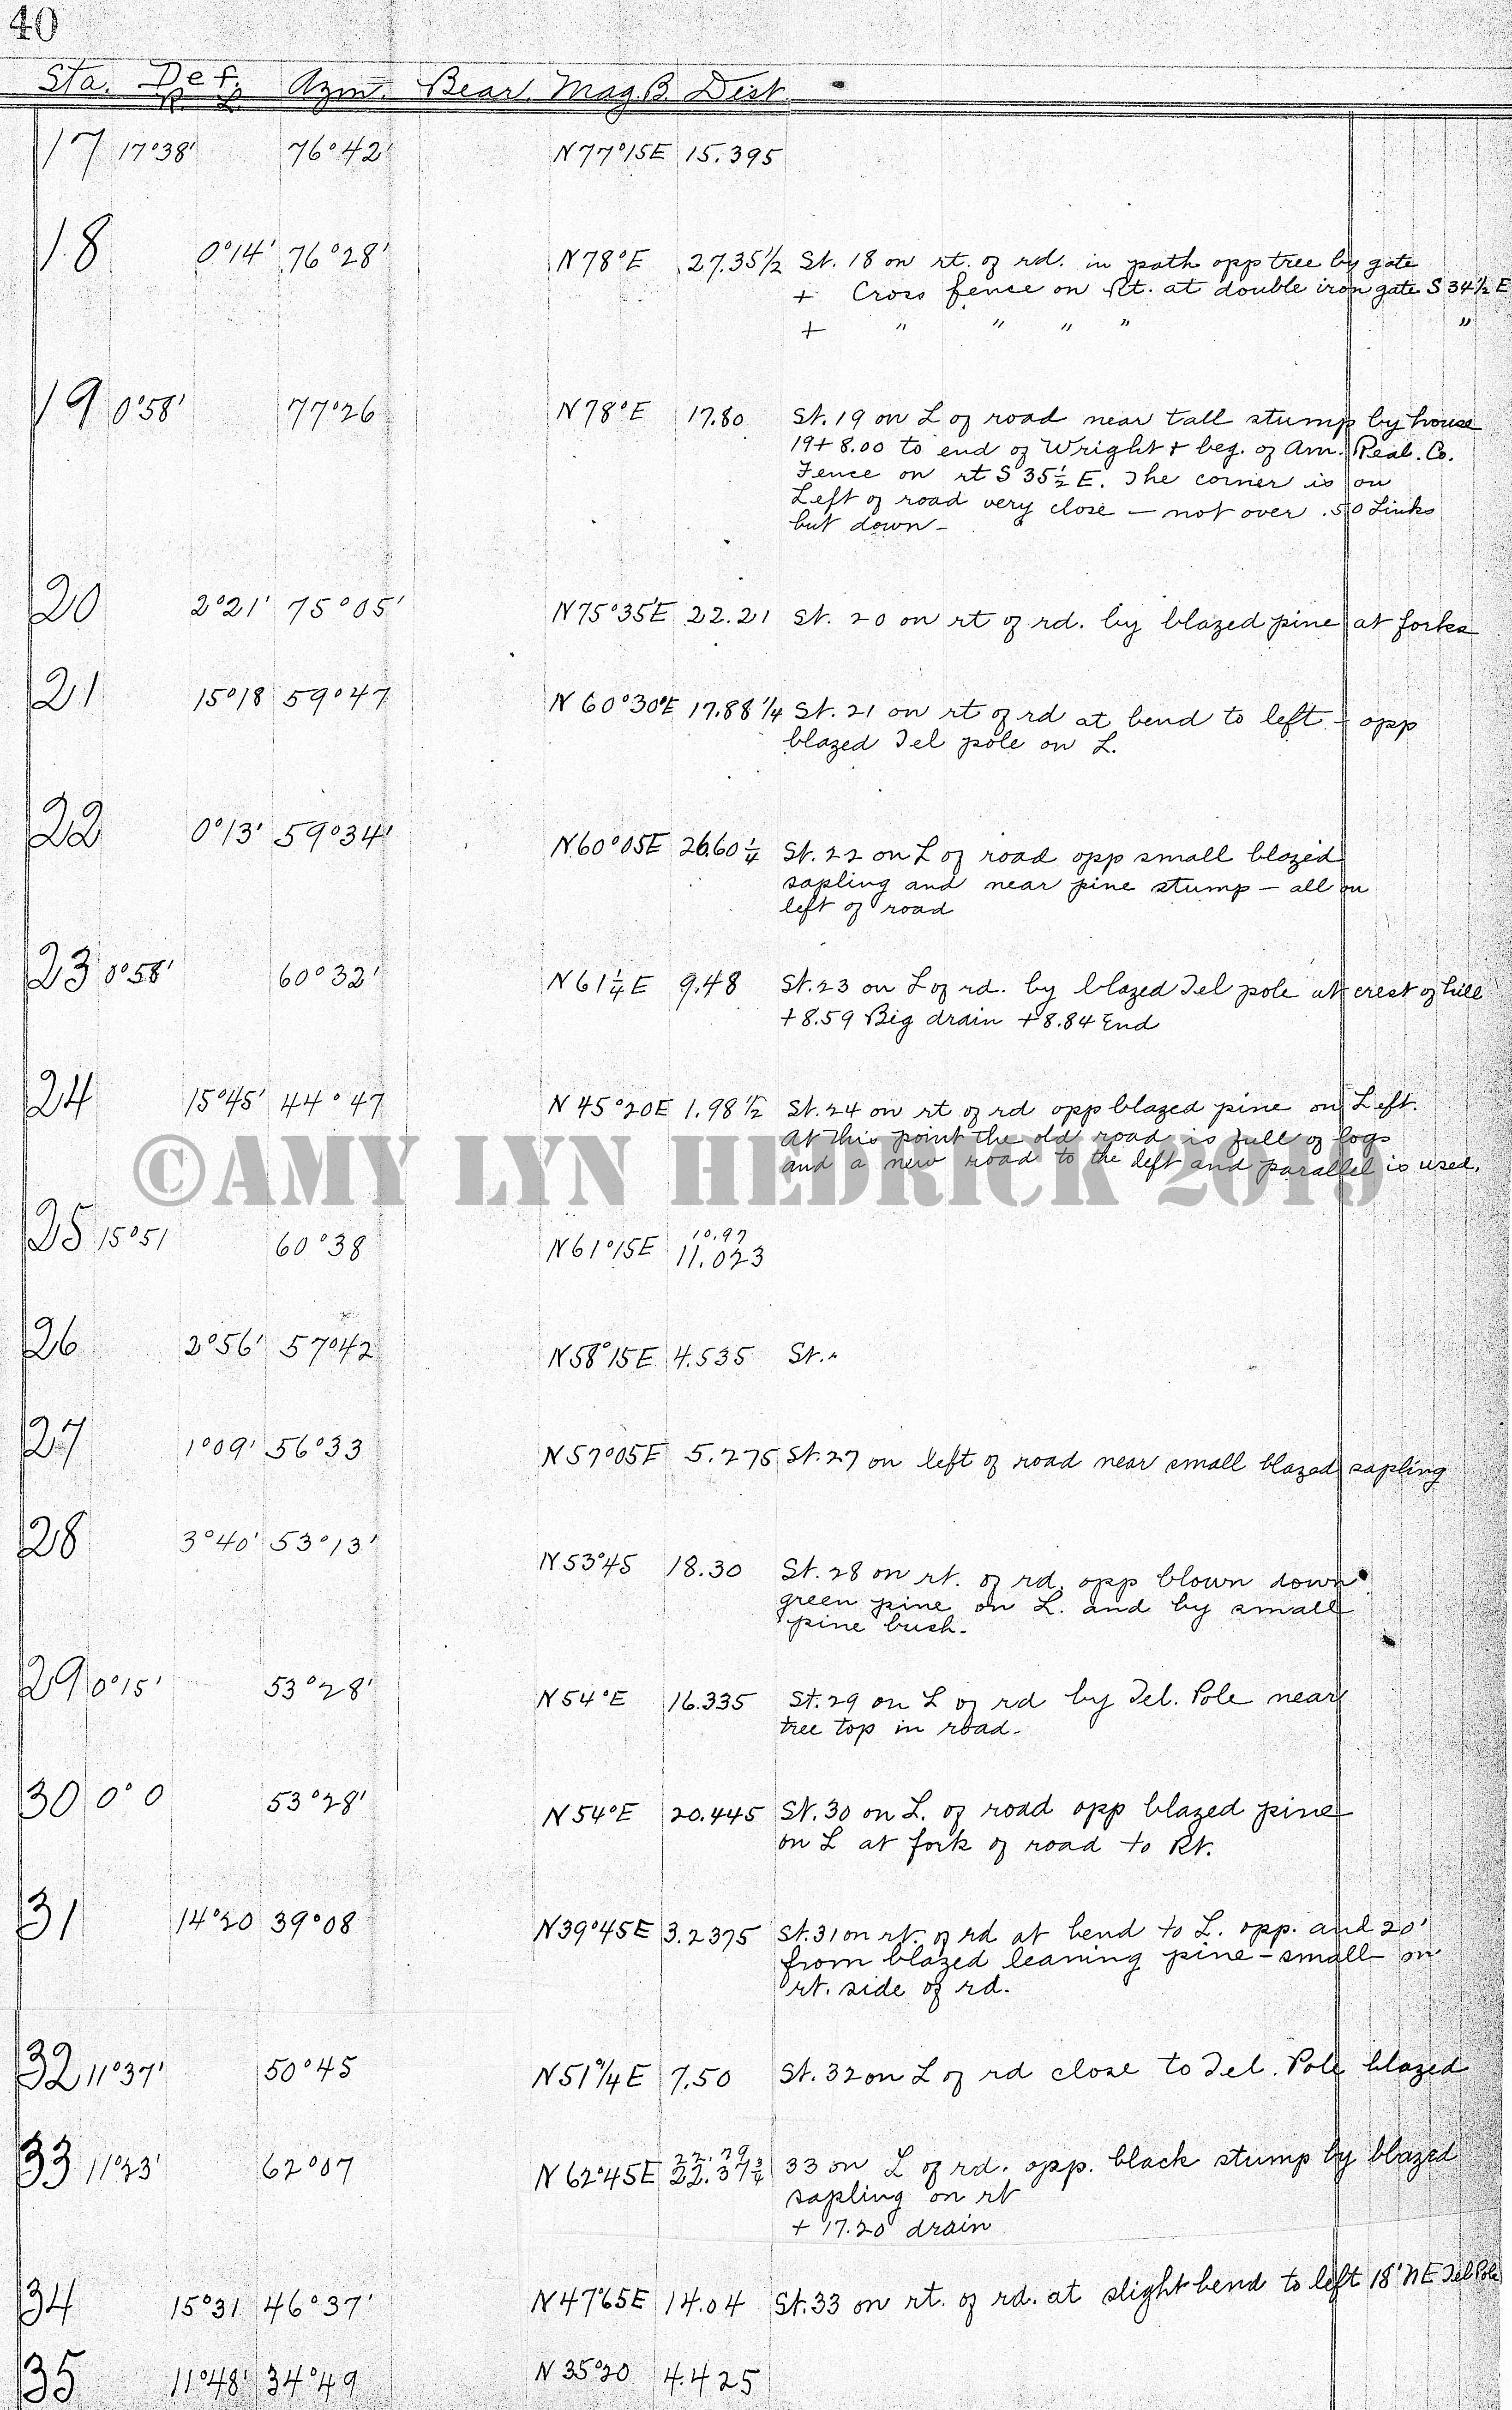 40
Sta. Def. Azm. Bear. Mag.B. Dist.
R L
17 17°38' 76°42' N77°15E 15.395
18 0°14' 76°28' N78°E 27.35½ St. 18 on rt. of rd. in path opp tree by gate
+ Cross fence on Rt. at double iron gate S34½E
+ " " " " "
19 0°58' 77°26 N78°E 17.80 St. 19 on L of road near tall stump by house
19+8.00 to end of Wright & beg. of Am. Real. Co.
Fence on rt S35½E. The corner is on
Left of road very close — not over .50 Links
but down —
20 2°21' 75°05' N75°35'E 22.21 St. 20 on rt of rd. by blazed pine at forks
21 15°18 59°47 N60°30'E 17.88¼ St. 21 on rt of rd at bend to left - opp
blazed Tel pole on L.
22 0°13' 59°34' N60°05E 26.60¼ St. 22 on L of road opp small blazed
sapling and near pine stump — all on
left of road
23 0°58' 60°32' N61¼E 9.48 St. 23 on L of rd. by blazed Tel pole at crest of hill
+8.59 Big drain +8.84 End
24 15°45' 44°47 N45°20E 1.98½ St. 24 on rt of rd opp blazed pine on Left.
At this point the old road is full of logs
and a new road to the left and parallel is used.
©AMY LYN HEDRICK 2019
25 15°51 60°38 N61°15E 10.97
11.023
26 2°56' 57°42 N58°15E 4.535 St. "
27 1°09' 56°33 N57°05E 5.275 St. 27 on left of road near small blazed sapling
28 3°40' 53°13' N53°45 18.30 St. 28 on rt. of rd. opp blown down
green pine on L. and by small
pine bush.
29 0°15' 53°28' N54°E 16.335 St. 29 on L of rd by Tel. Pole near
tree top in road.
30 0°0 53°28' N54°E 20.445 St. 30 on L. of road opp blazed pine
on L at fork of road to Rt.
31 14°20 39°08 N39°45E 3.2375 St. 31 on rt. of rd at bend to L. opp. and 20'
from blazed leaning pine — small on
rt. side of rd.
32 11°37' 50°45 N51°¼E 7.50 St. 32 on L of rd close to Tel. Pole blazed
33 11°23' 62°07 N62°45E 22.79
22.37¾ 33 on L of rd. opp. black stump by blazed
sapling on rt
+ 17.20 drain
34 15°31 46°37' N47°65E 14.04 St. 33 on rt. of rd. at slight bend to left 18' NE Tel Pole
35 11°48' 34°49 N35°20 4.425